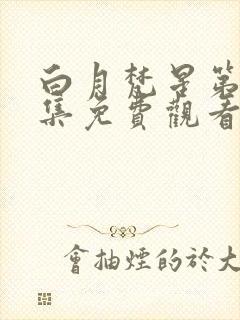 白月梵星第
集免費觀看
會抽煙的於大